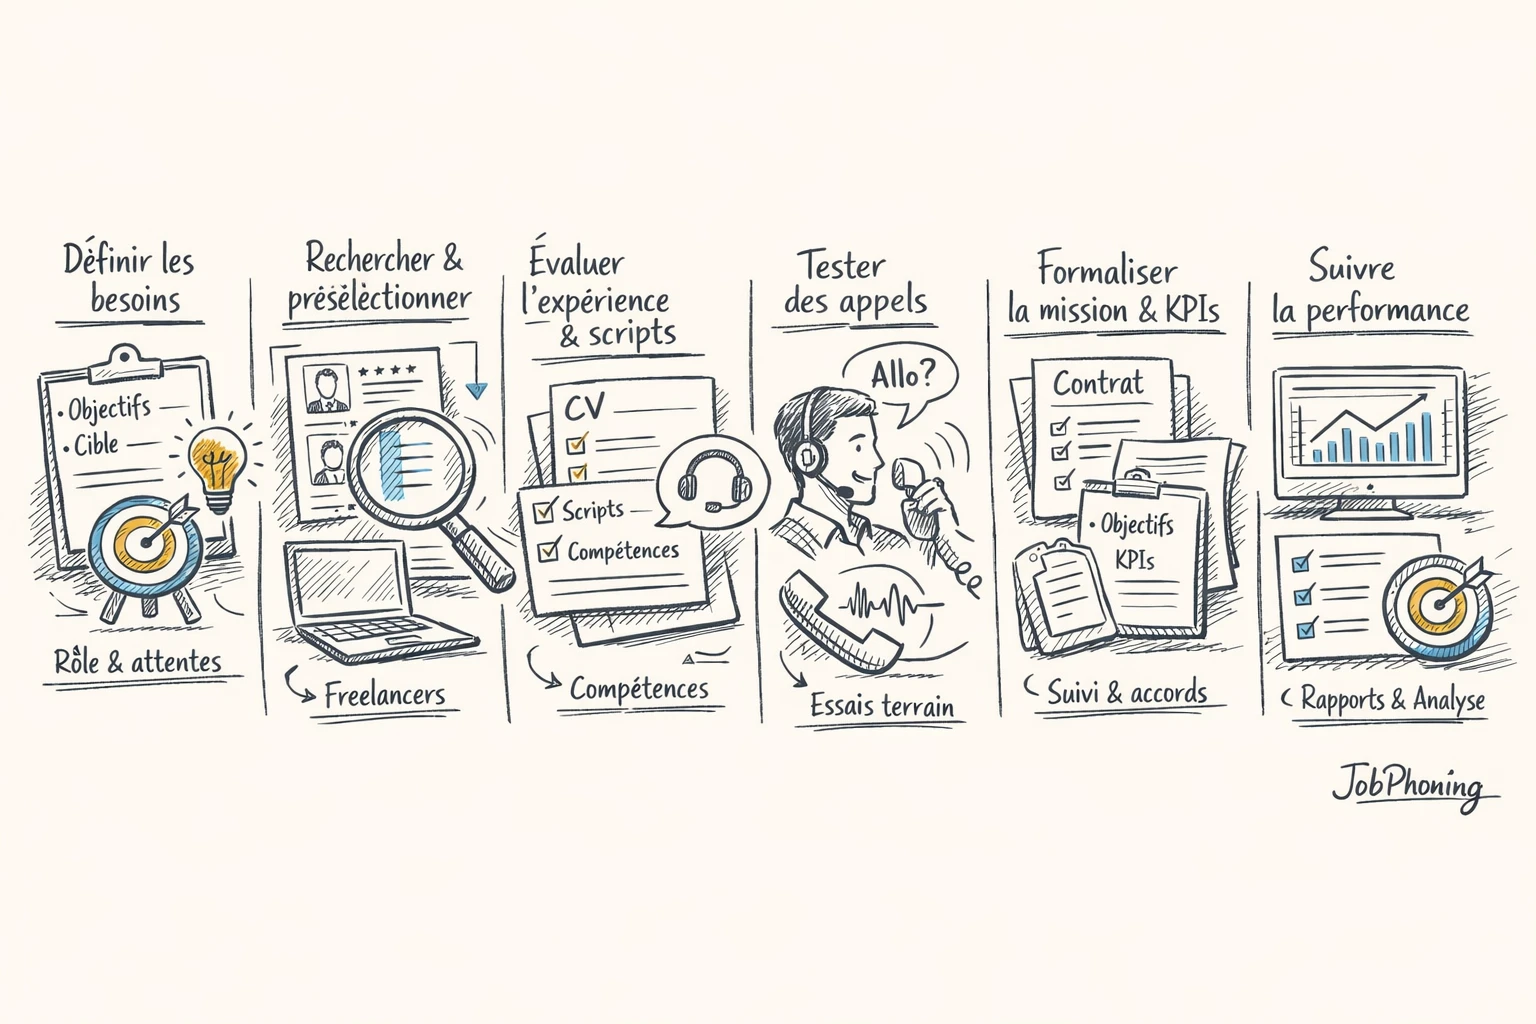 Définir les
besoins
• Objectifs
• Cible
Rôle & attentes
Rechercher &
présélectionner
Freelancers
Évaluer
l'expérience
& scripts
CV
Scripts
Compétences
Compétences
Tester
des appels
Allo?
Essais terrain
Formaliser
la mission & KPIs
Contrat
• Objectifs
KPIs
Suivi & accords
Suivre
la performance
Rapports & Analyse
JobPhoning